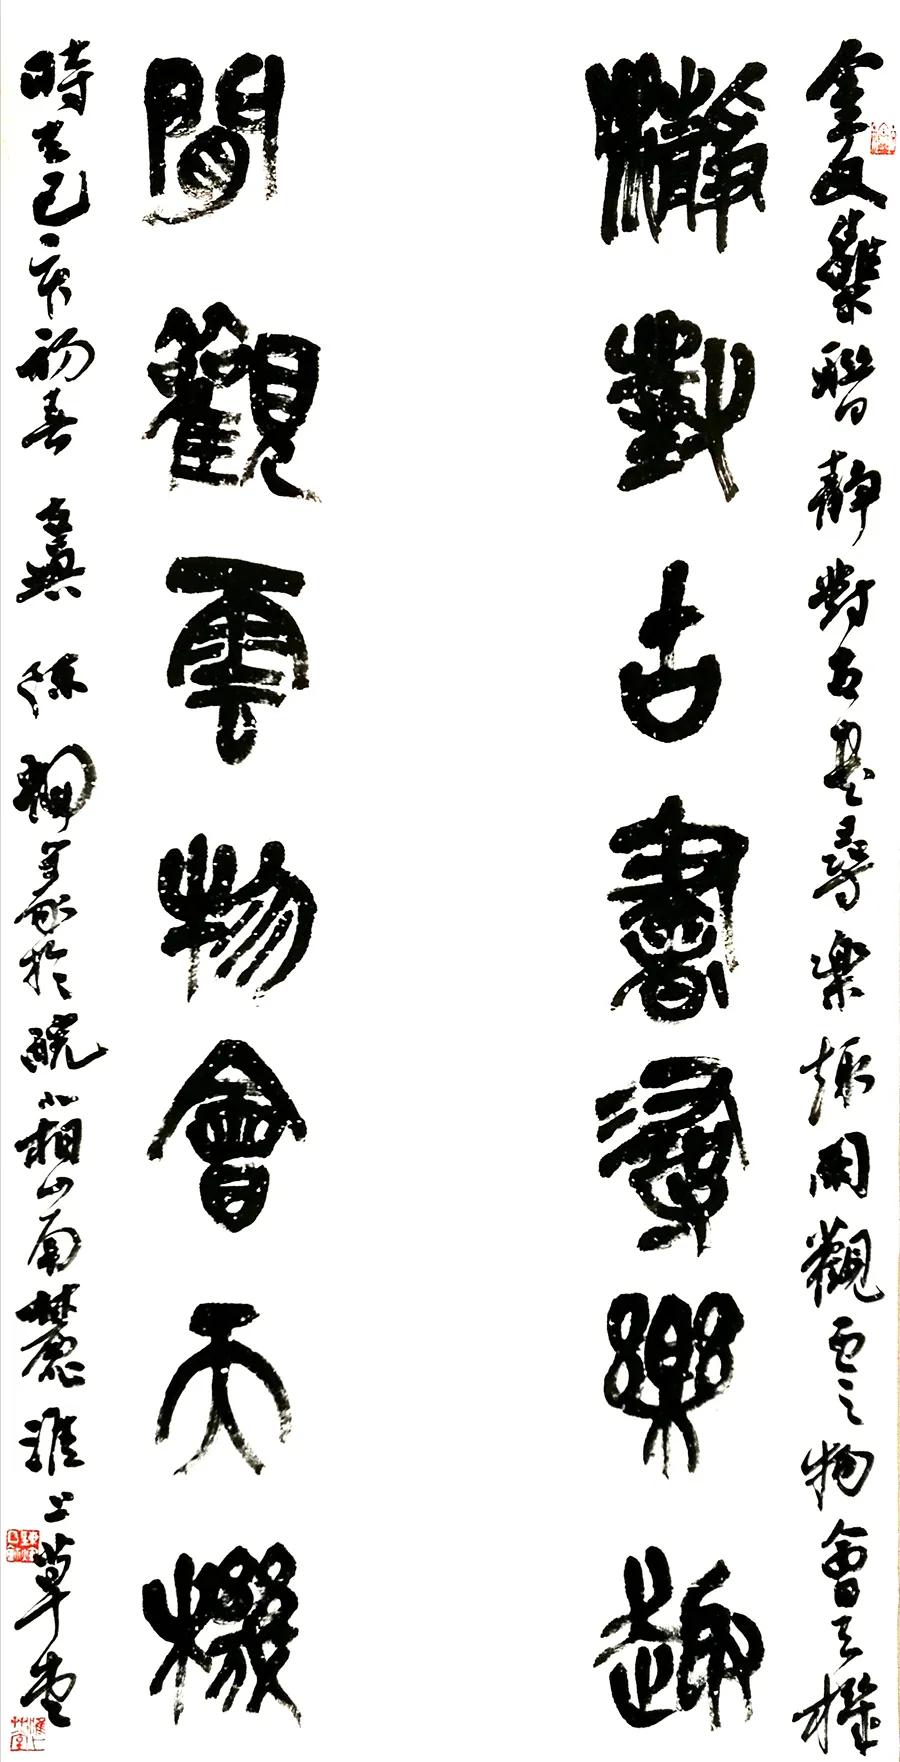 金文集聯靜對古書尋樂趣閑觀雲物會天機
靜對古書尋樂趣
閒觀雲物會天機
時在己亥初春 陳 篆於皖北相山南麓淮上草堂